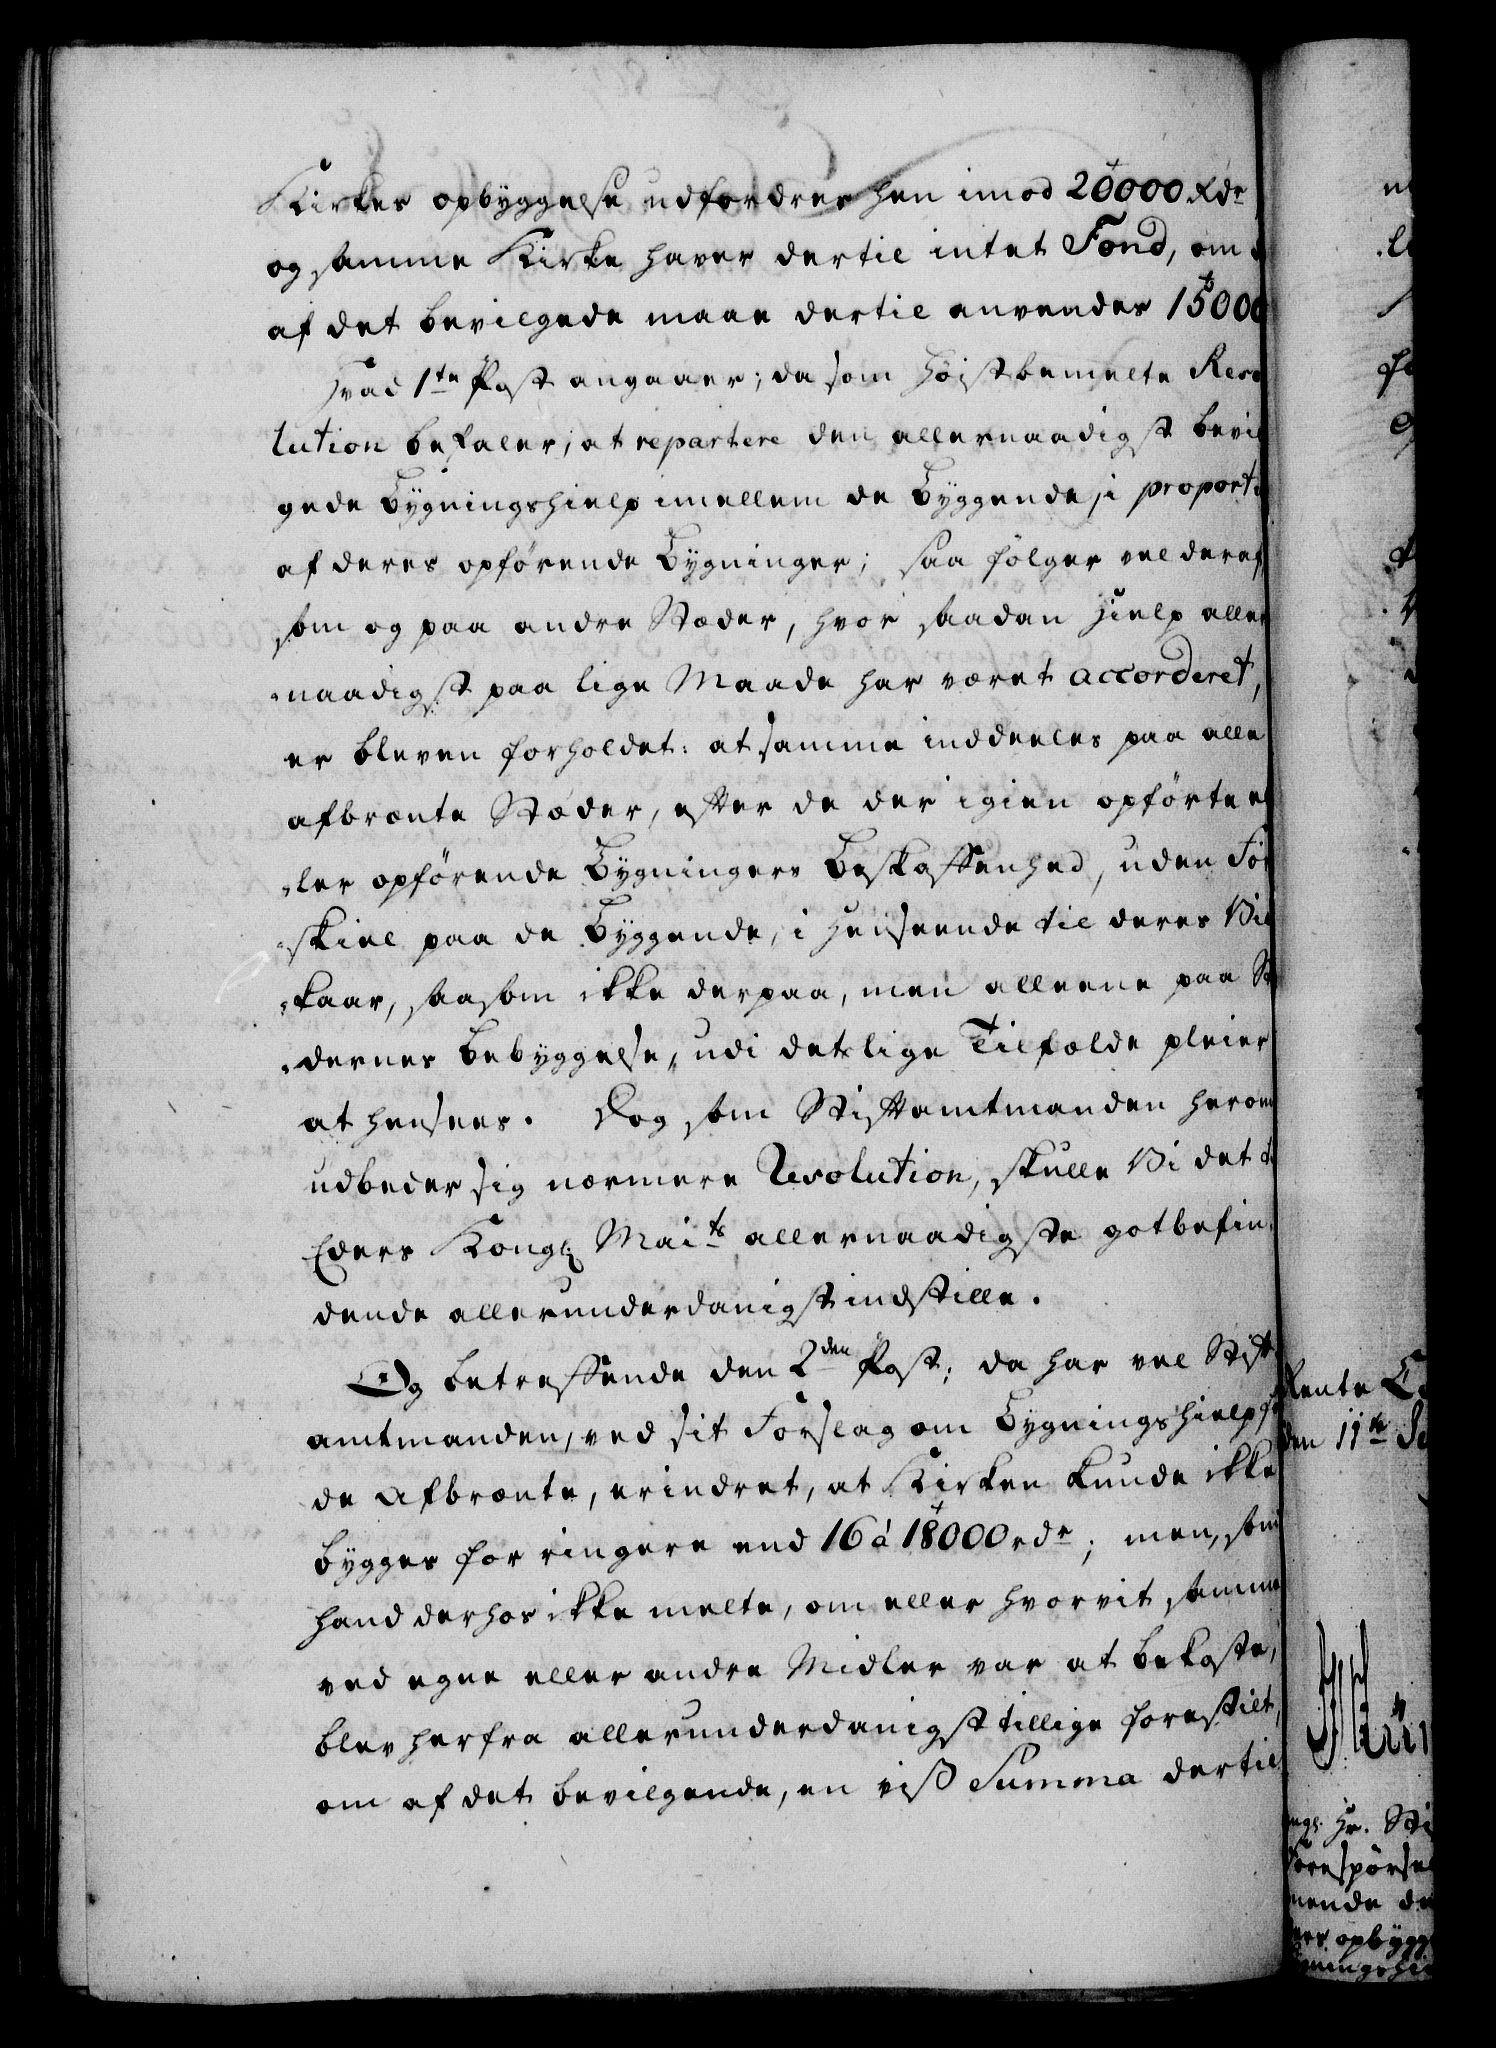 Kirkes opbyggelse udfordres hen imod 20000 Rdr
og samme Kirke haver dertil intet Fond, om
af det bevilgede maae dertil anvendes 15000
Hvad 1te Post angaaer; da som Høistbemelte Reso
lution befaler, at repartere den allernaadigst bevil
gede Bygningshielp imellem de Byggende, i proporti
af deres opførende Bygninger; saa følger vel deraf,
som og paa andre Stæder, hvor saadan Hielp aller
naadigst paa lige Maade har været accorderet,
er bleven forholdet: at samme inddeeles paa alle
afbrænte Stæder, efter de der igien opførte el
ler opførende Bygningers Beskaffenhed, uden For
skiel paa de Byggende, i Henseende til deres Vil
kaar, saasom ikke derpaa, men alleene paa St
dernes Bebyggelse, udi detslige Tilfælde pleier
at hensees. Dog som Stiftamtmanden herom
udbeder sig nærmere Resolution, skulle Vi det t
Eders Kongl Maits allernaadigste gotbefin
dende allerunderdanigst indstille.
Og betreffende den 2den Post; da har vel Stift
amtmanden, ved sit Forslag om Bygningshielp f
de Afbrænte, erindret, at Kirken kunde ikke
bygges for ringere end 16 à 18000 rdr; men, som
hand derhos ikke melte, om eller hvorvit samme
ved egne eller andre Midler var at bekoste,
blev herfra allerunderdanigst tillige forestilt,
om af det bevilgende, en viß Summa dertil
Rente C
den 11te Se
Hr. Sti
orespørsel
nende de
opbygg
gningshie